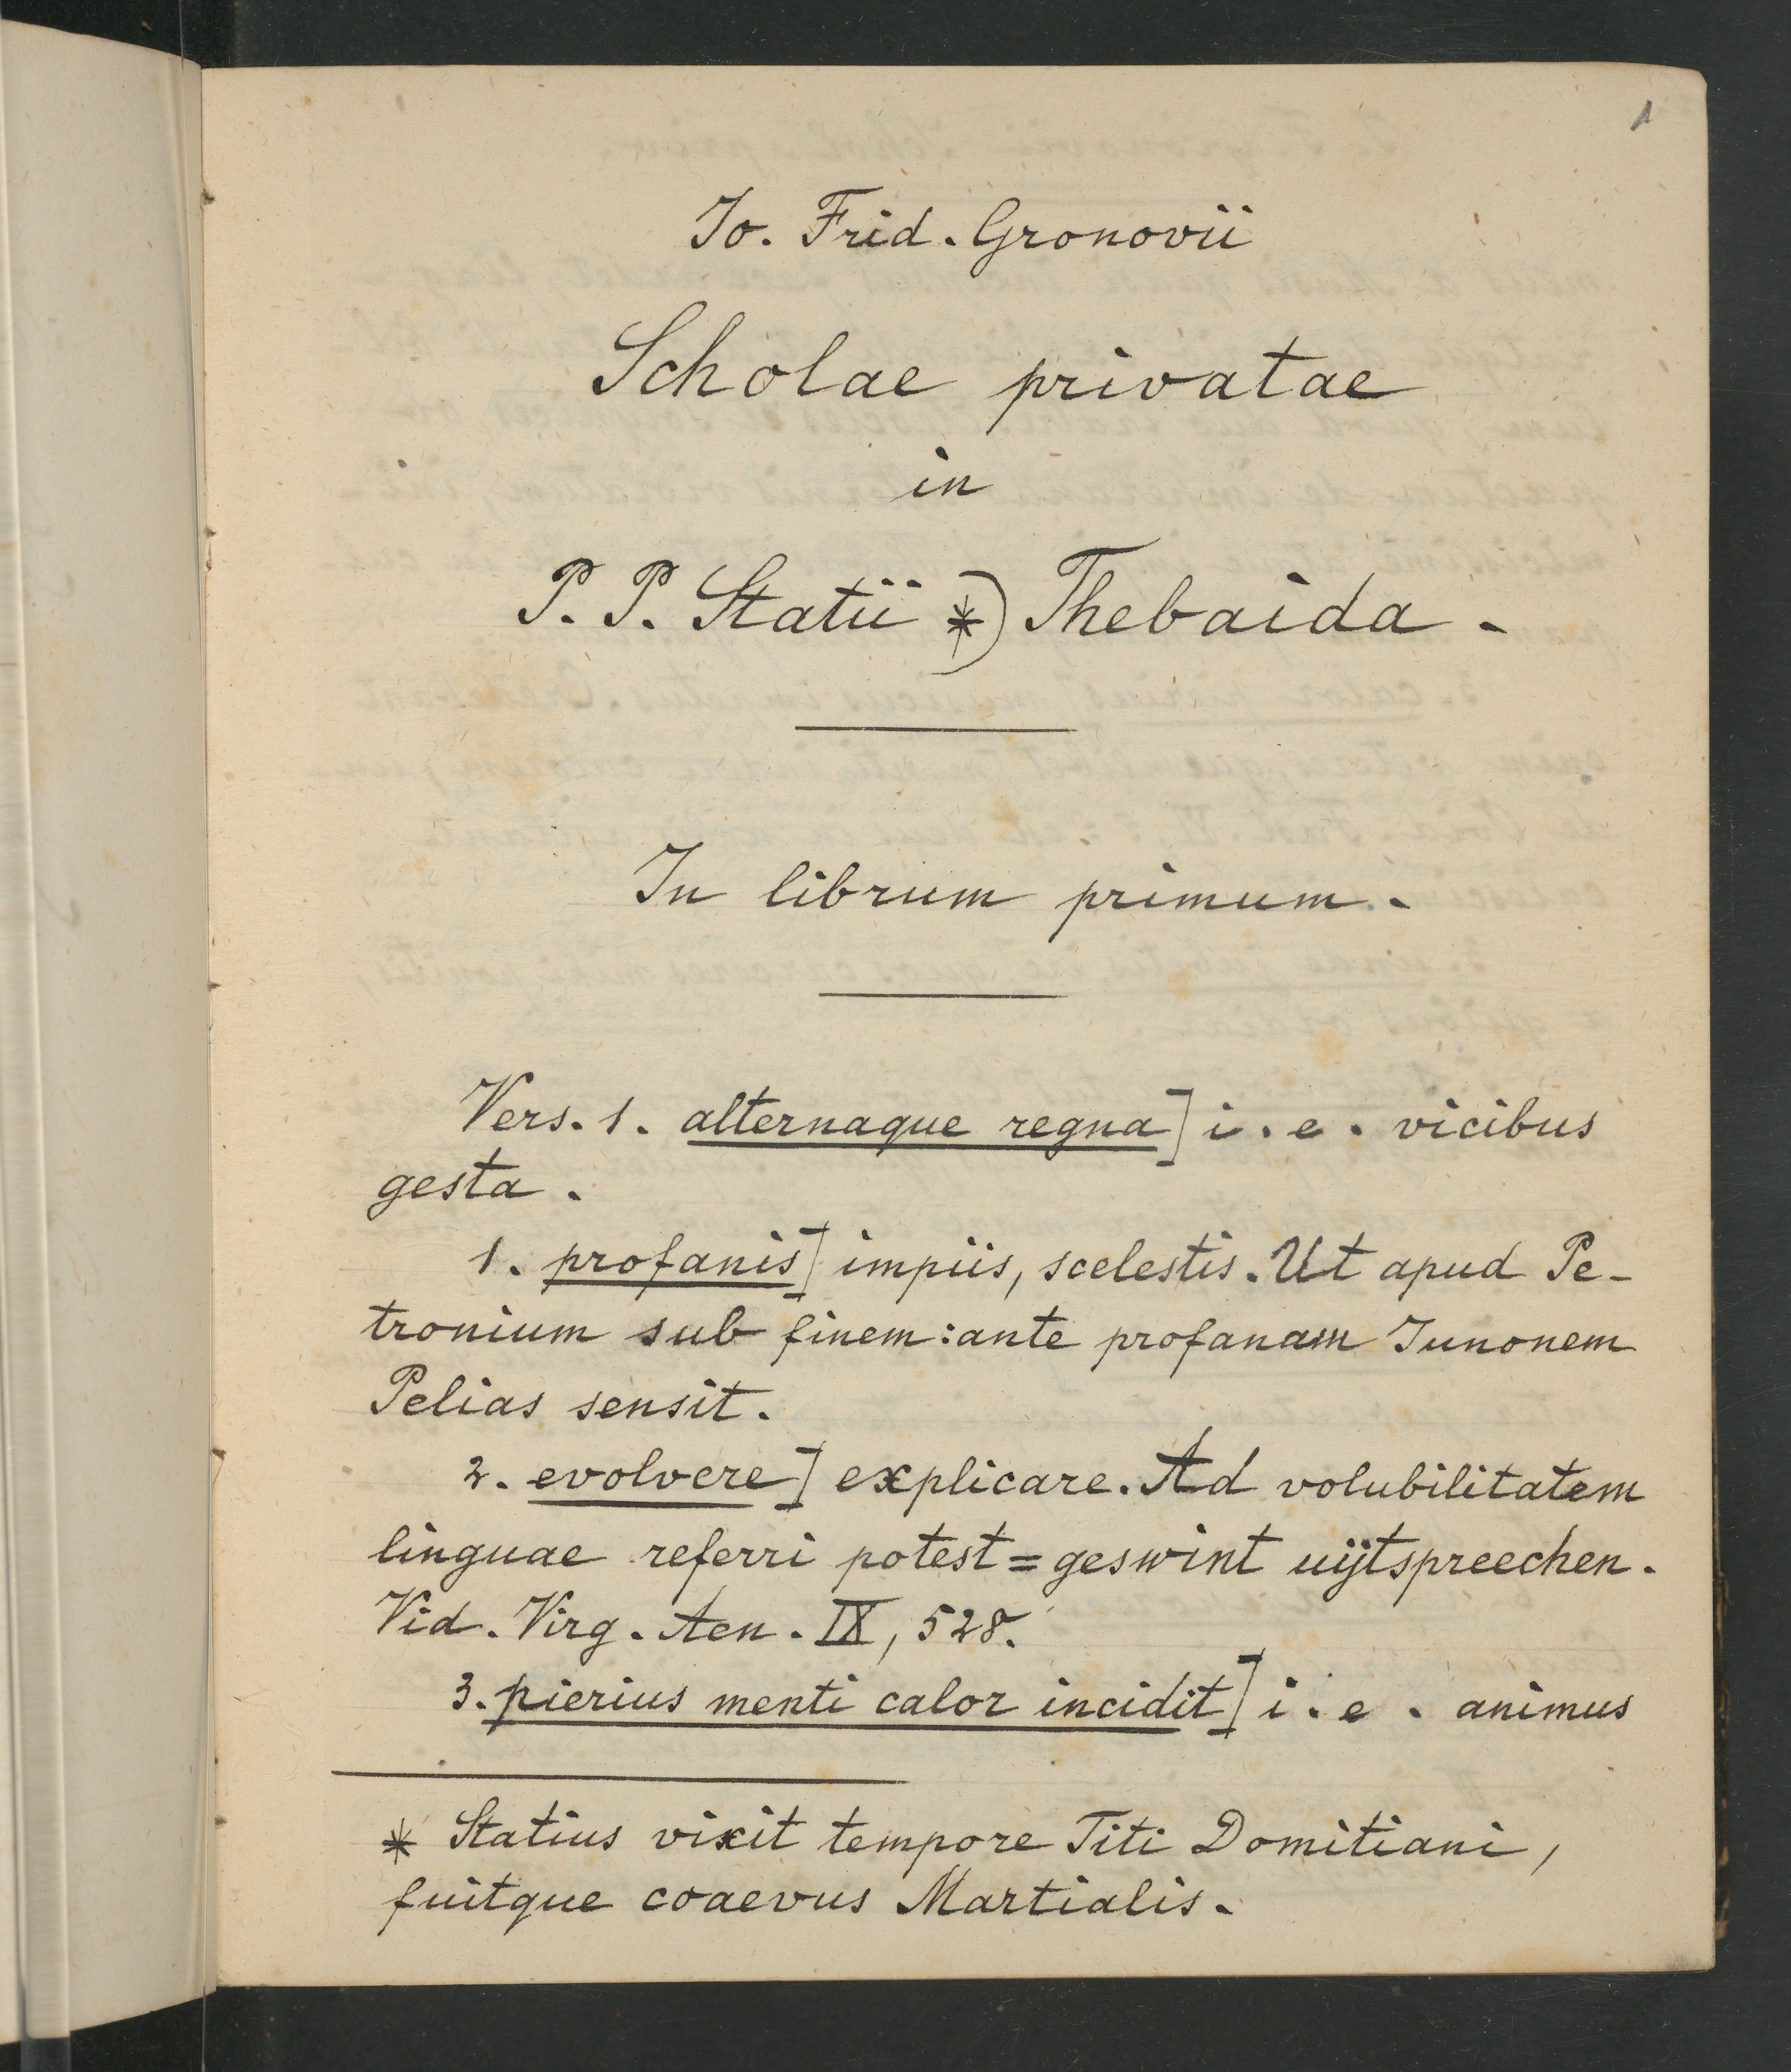 1
Io. Frid. Gronovii
Scholae privatae
in
P. P. Statii *) Thebaida.
In librum primum.
Vers. 1. alternaque regna] i. e. vicibus
gesta.
1. profanis] impiis, scelestis. Ut apud Pe-
tronium sub finem: ante profanam Iunonem
Pelias sensit.
2. evolvere] explicare. Ad volubilitatem
linguae referri potest = geswint uijtspreechen.
Vid. Virg. Aen. IX, 528.
3. pierius menti calor incidit] i. e. animus
* Statius vixit tempore Titi Domitiani,
fuitque coaevus Martialis.